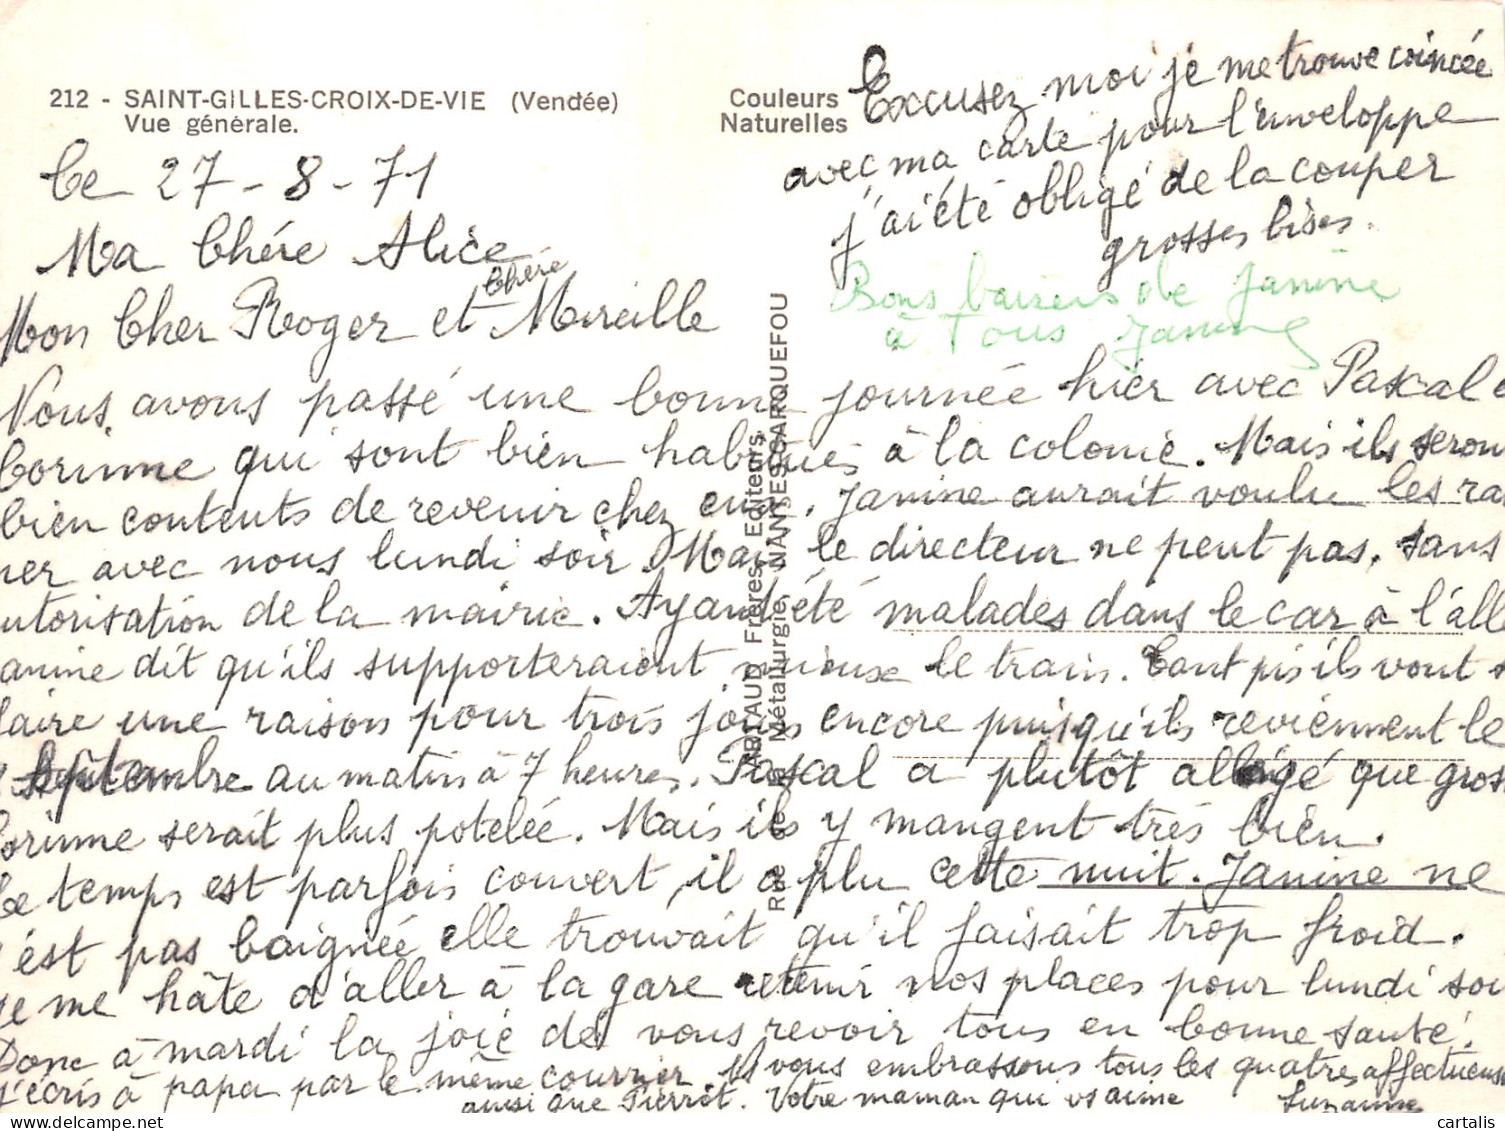 212 - SAINT-GILLES-CROIX-DE-VIE (Vendée)
Vue générale.
Couleurs
Naturelles
Excusez moi je me trouve coincée
avec ma carte pour l'enveloppe
j'ai été obligé de la couper
grosses bises.
Bons baisers de Janine
à Tous Janine
Le 27-8-71
Ma Chére Alice
Mon Cher Roger et Chére Mireille
Nous avons passé une bonne journée hier avec Pascal e
Corinne qui sont bien habitués à la colonie. Mais ils seron
bien contents de revenir chez eux. Janine aurait voulu les ra
ner avec nous lundi soir. Mais le directeur ne peut pas. sans
utorisation de la mairie. Ayant été malades dans le car à l'alle
anine dit qu'ils supporteraient mieux le train. Tant pis ils vont s
faire une raison pour trois jours encore puisqu'ils reviennent le
septembre au matin à 7 heures. Pascal a plutôt allongé que gros
Corinne serait plus potelée. Mais ils y mangent très bien.
Le temps est parfois couvert, il a plu cette nuit. Janine ne
s'est pas baignée elle trouvait qu'il faisait trop froid.
Je me hâte d'aller à la gare retenir nos places pour lundi soi
Donc à mardi la joie de vous revoir tous en bonne santé.
J'écris à papa par le même courrier. vous embrassons tous les quatres affectueus
ainsi que Pierrot. Votre maman qui vs aime Suzanne
ARTAUD Frères, Editeurs,
Rue de la Métallurgie, NANTES-CARQUEFOU
cartalis